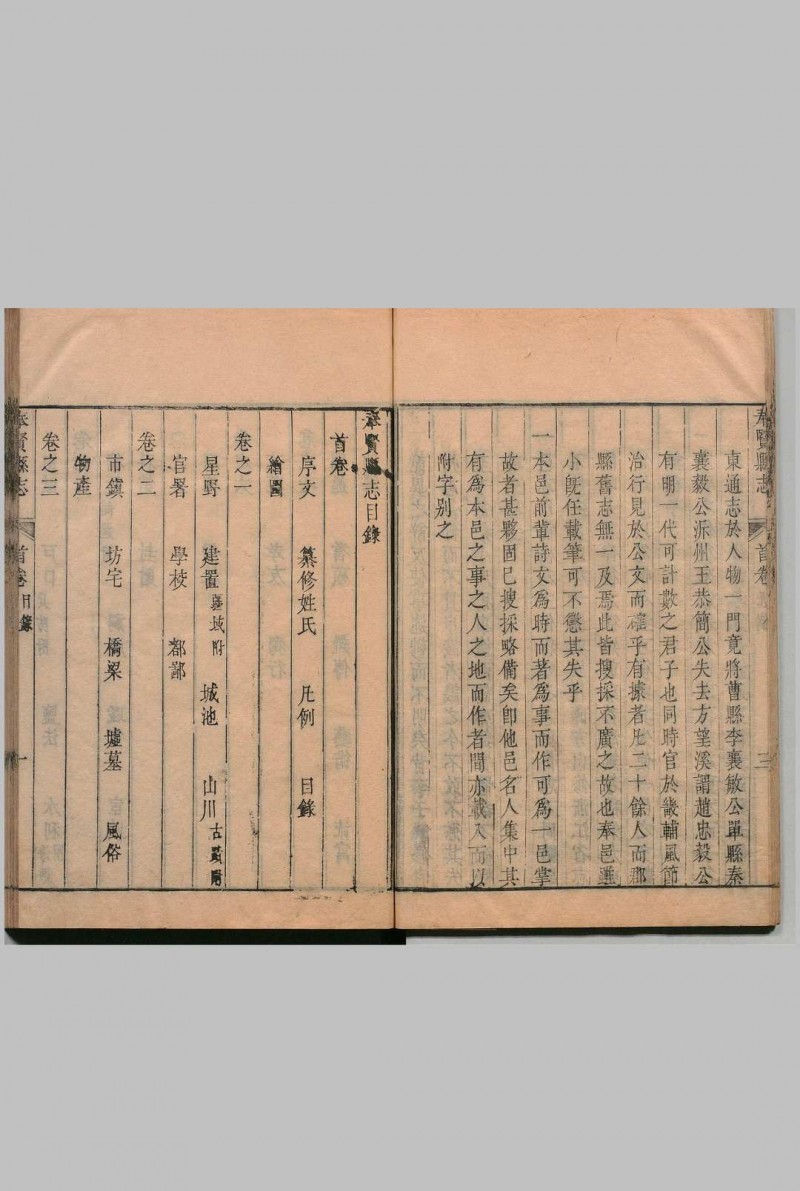 奉賢縣志
首卷
三
東通志於人物一門竟將曹縣李襄敏公單縣秦
襄毅公泝州王恭簡公失去方望溪謂趙忠毅公
有明一代可計數之君子也同時官於畿輔風節
治行見於公文而確乎有據者凡二十餘人而郡
縣舊志無一及焉此皆搜採不廣之故也奉邑雖
小旣任載筆可不懲其失乎
一本邑前輩詩文爲時而著爲事而作可爲一邑掌
故者甚夥固已搜採略備矣卽他邑名人集中其
有爲本邑之事之人之地而作者間亦載入而以
附字别之
奉賢縣志目錄
首卷
序文 纂修姓氏 凡例 目錄
繪圖
卷之一
星野 建置 疆域附 城池 山川 古蹟附
官署 學校 都鄙
卷之二
市鎭 坊宅 橋梁 墟墓 風俗
物產
卷之三
奉賢縣志
首卷 目錄
一